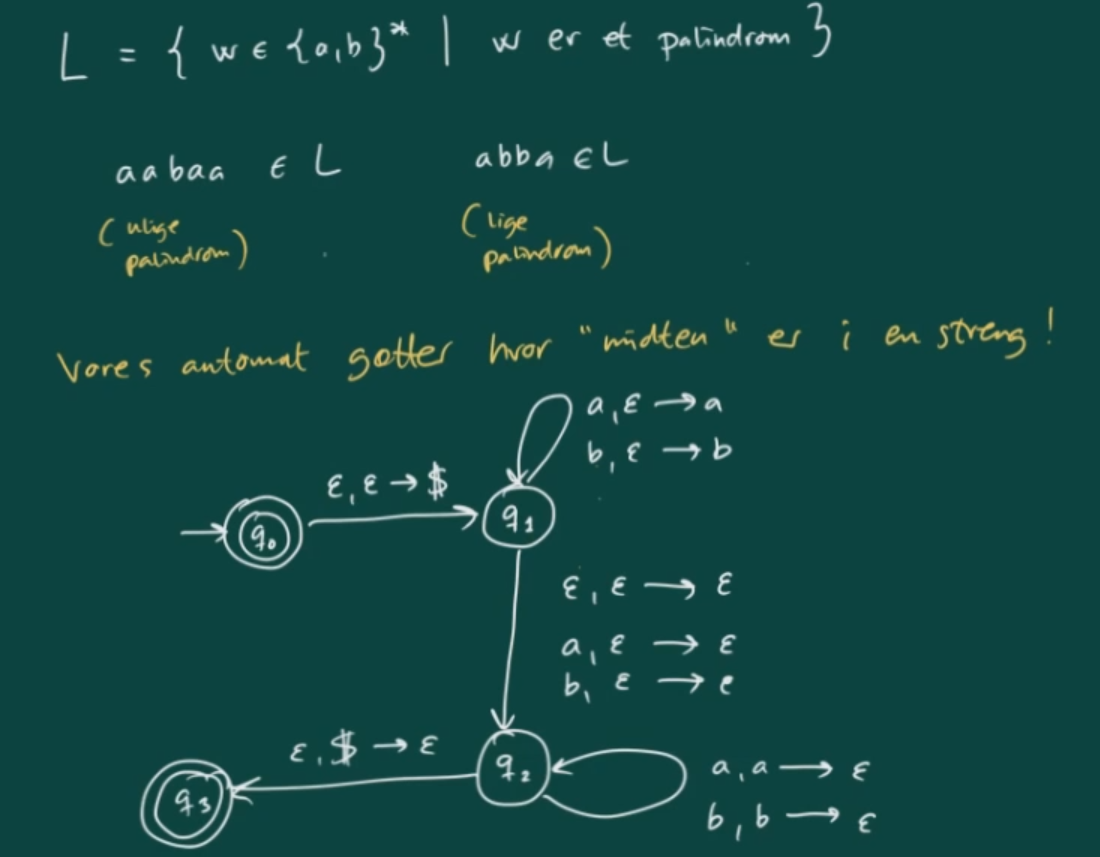 L = { w ∈ {a,b}* | w er et palindrom }
aabaa ∈ L abba ∈ L
(ulige palindrom) (lige palindrom)
Vores automat gætter hvor "midten" er i en streng!
a, ε → a
b, ε → b
ε, ε → $
q₀ q₁
ε, ε → ε
a, ε → ε
b, ε → ε
ε, $ → ε
q₃ q₂
a, a → ε
b, b → ε